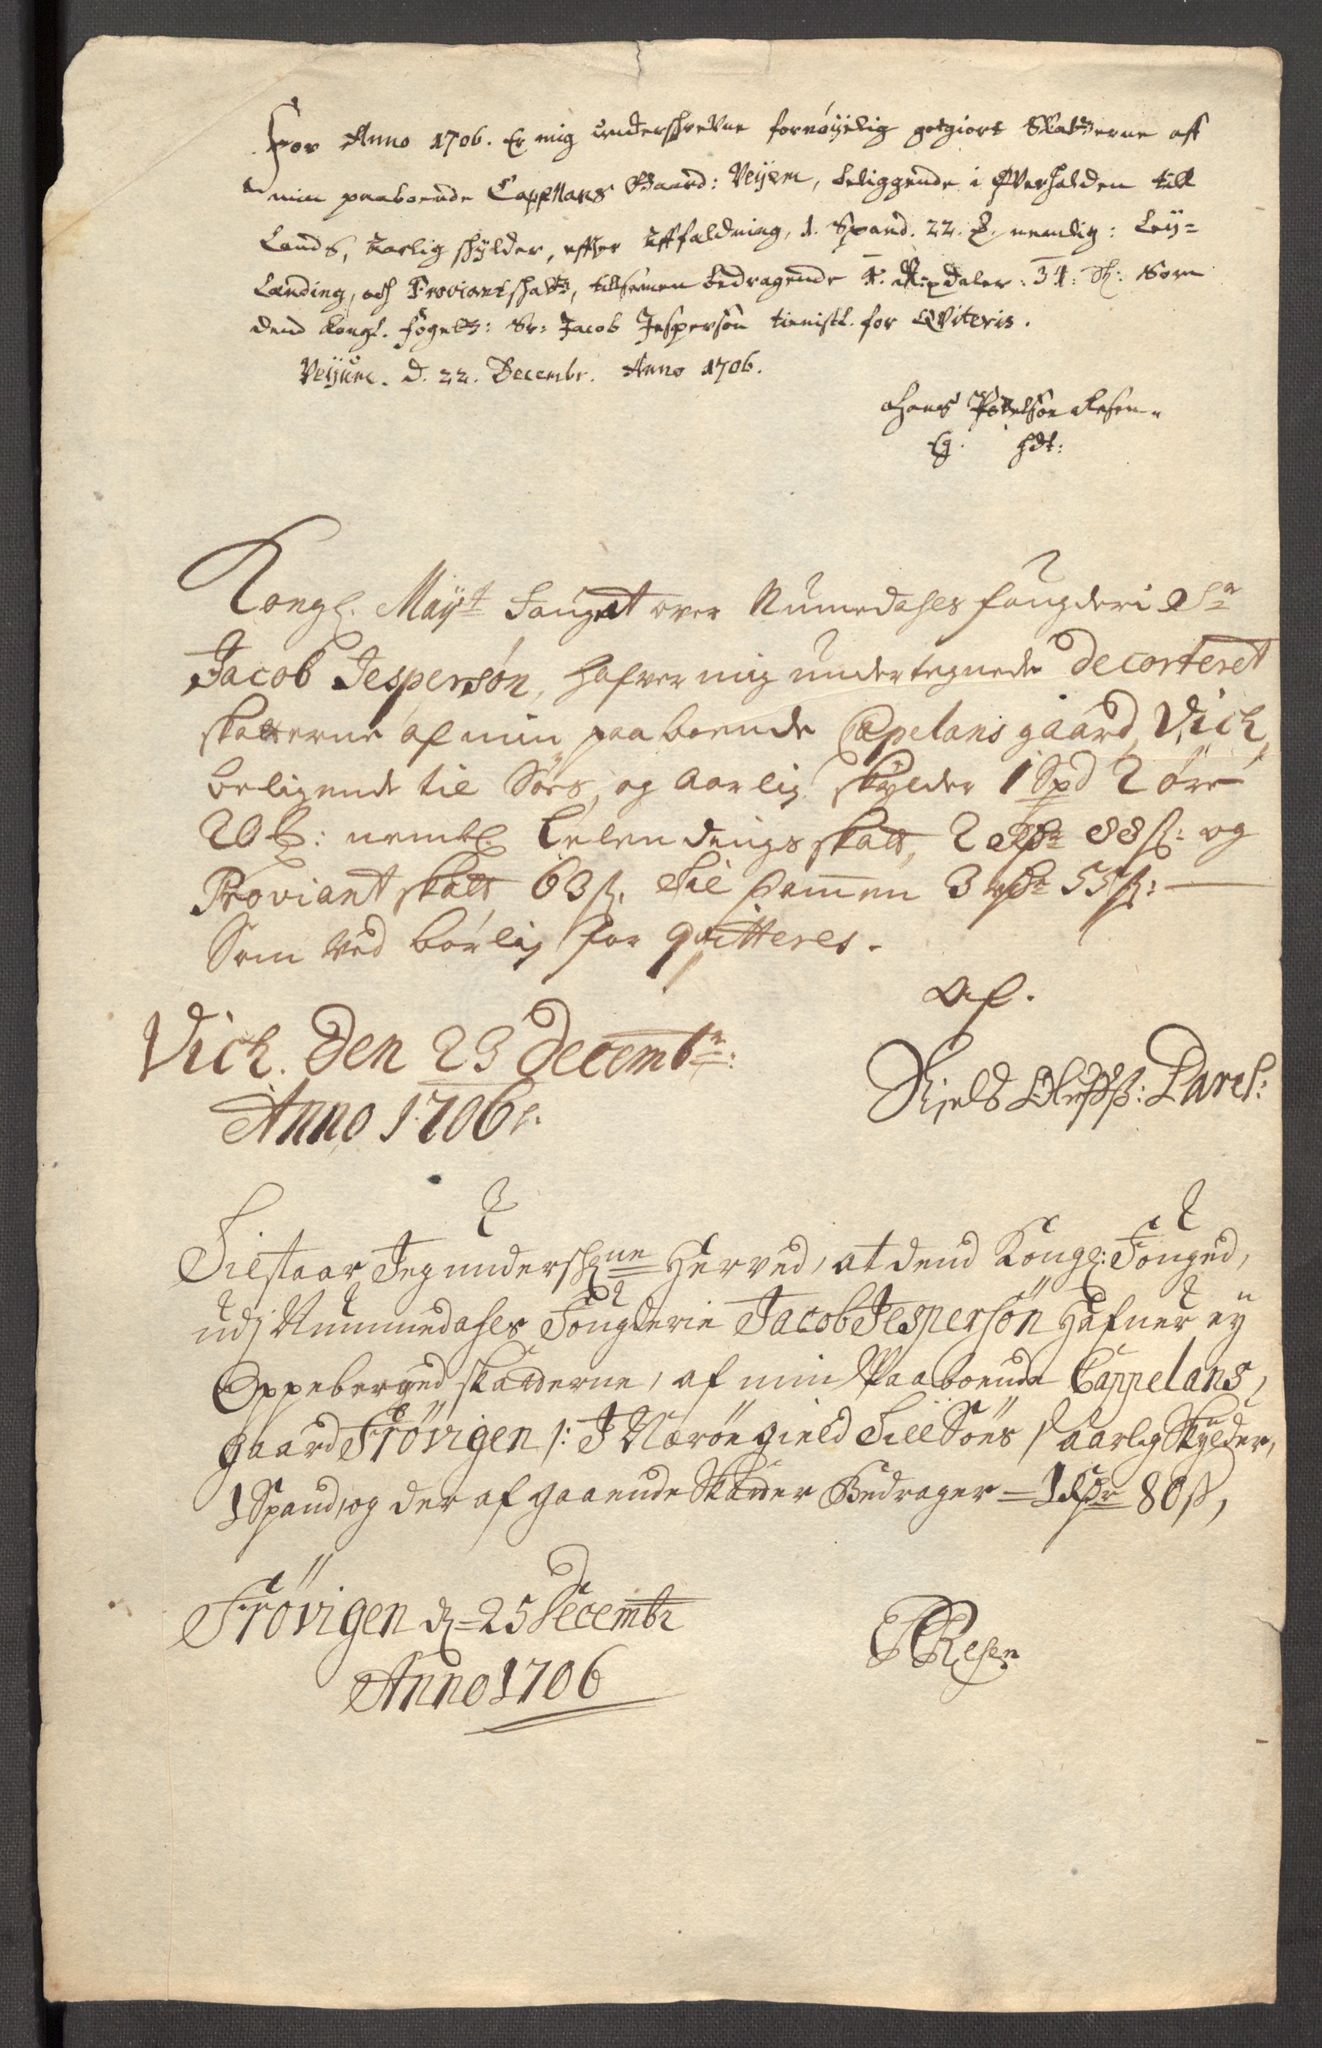 For Anno 1706. Er mig underschrefne fornøyelig gotgiort Skatterne aff
min paaboende Cappellans Gaard: Veyem, beliggende i Øverhalden till
Lands, aarlig schylder, effter affældning, 1. Spand. 22. nemlig: Ley=
Lænding, och Proviantskatt, tillsamen bedragende 4. Rixdaler: 34: sk: Som
dend kongl. Foget: Sr: Jacob Jespersøn tienistl. for Qviteris.
Veyum. d. 22. Decembr. Anno 1706.
Hans Resen
Eg. hdt:
Kongl. Mayt Fougat over Numedahls fougderi Sr
Jacob Jespersøn, hafver mig undertegnede decorteret
skatterne af min paaboende Capelans gaard, Vich,
beligende til Søes, og aarlig skylder 1 Spd 2 øre
20 nembl. Lelendings skatt, 2 rdr 88 s: og
Proviant skatt 63 s, til samen 3 rdr 55 s:
Som ved børlig for qvitteres.
Af.
Vich. den 23 decembr:
Anno 1706.
Niels
Tilstaar Jeg underschne Herved, at dend Kongl: Fouged,
udj Nummedahls Fougderie Jacob Jespersøn Hafuer ey
Oppeberged skatderne, af min Paaboende Cappelans,
gaard Frøvigen /: J Nærøe gield Till Søes / aarlig Skylder,
1 Spand, og der af gaaende Skatter Bedrager = 1 rdr 80 s,
Frøvigen d = 25 Decembr
Anno 1706
Resen